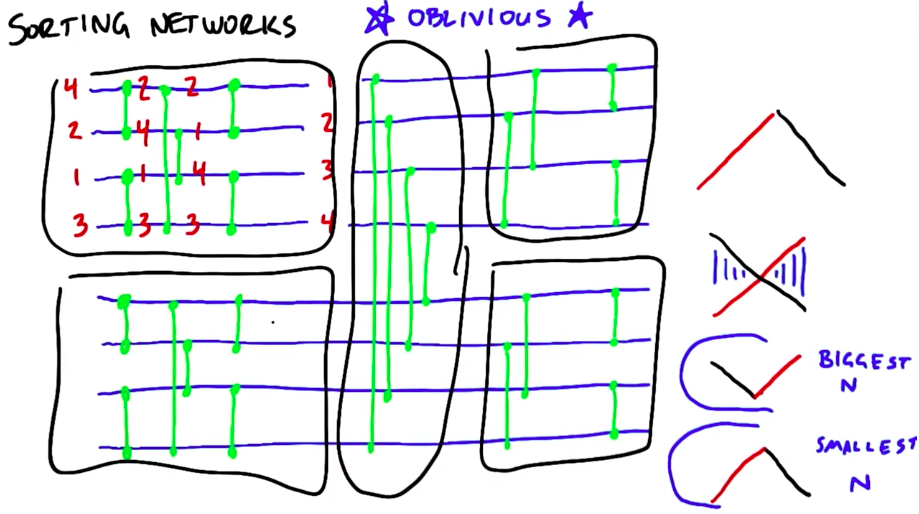 SORTING NETWORKS
OBLIVIOUS
4 2 2 1
2 4 1 2
1 1 4 3
3 3 3 4
BIGGEST
N
SMALLEST
N